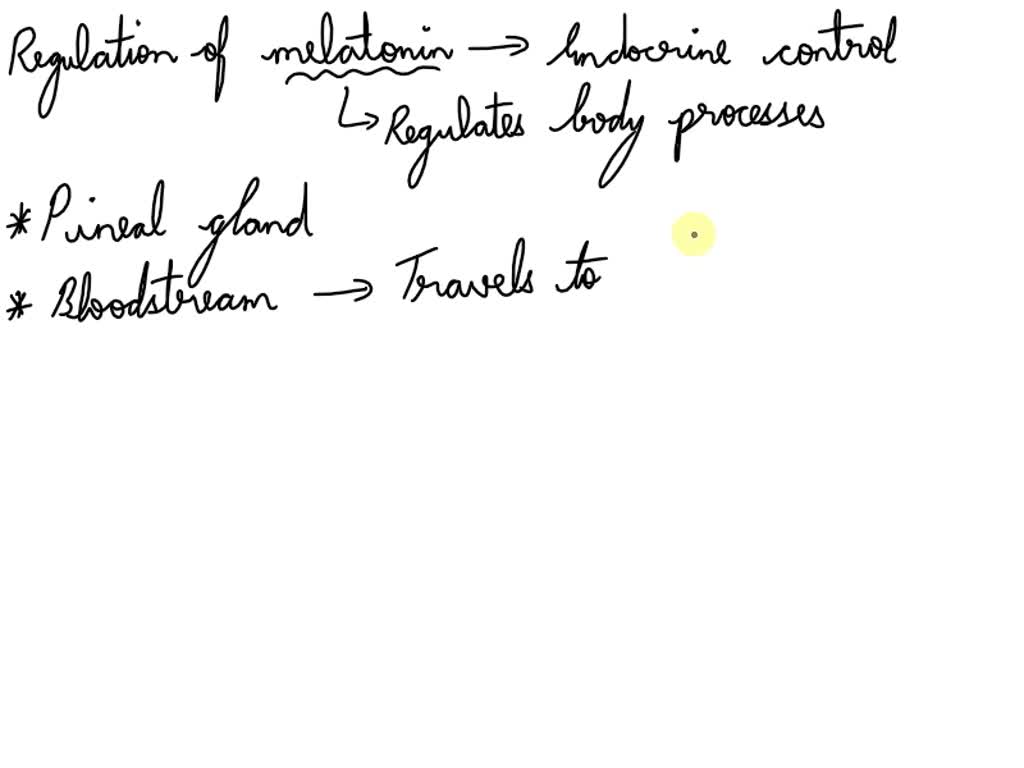 Regulation of melatonin → Endocrine control
↳ Regulates body processes
* Pineal gland
* Bloodstream → Travels to